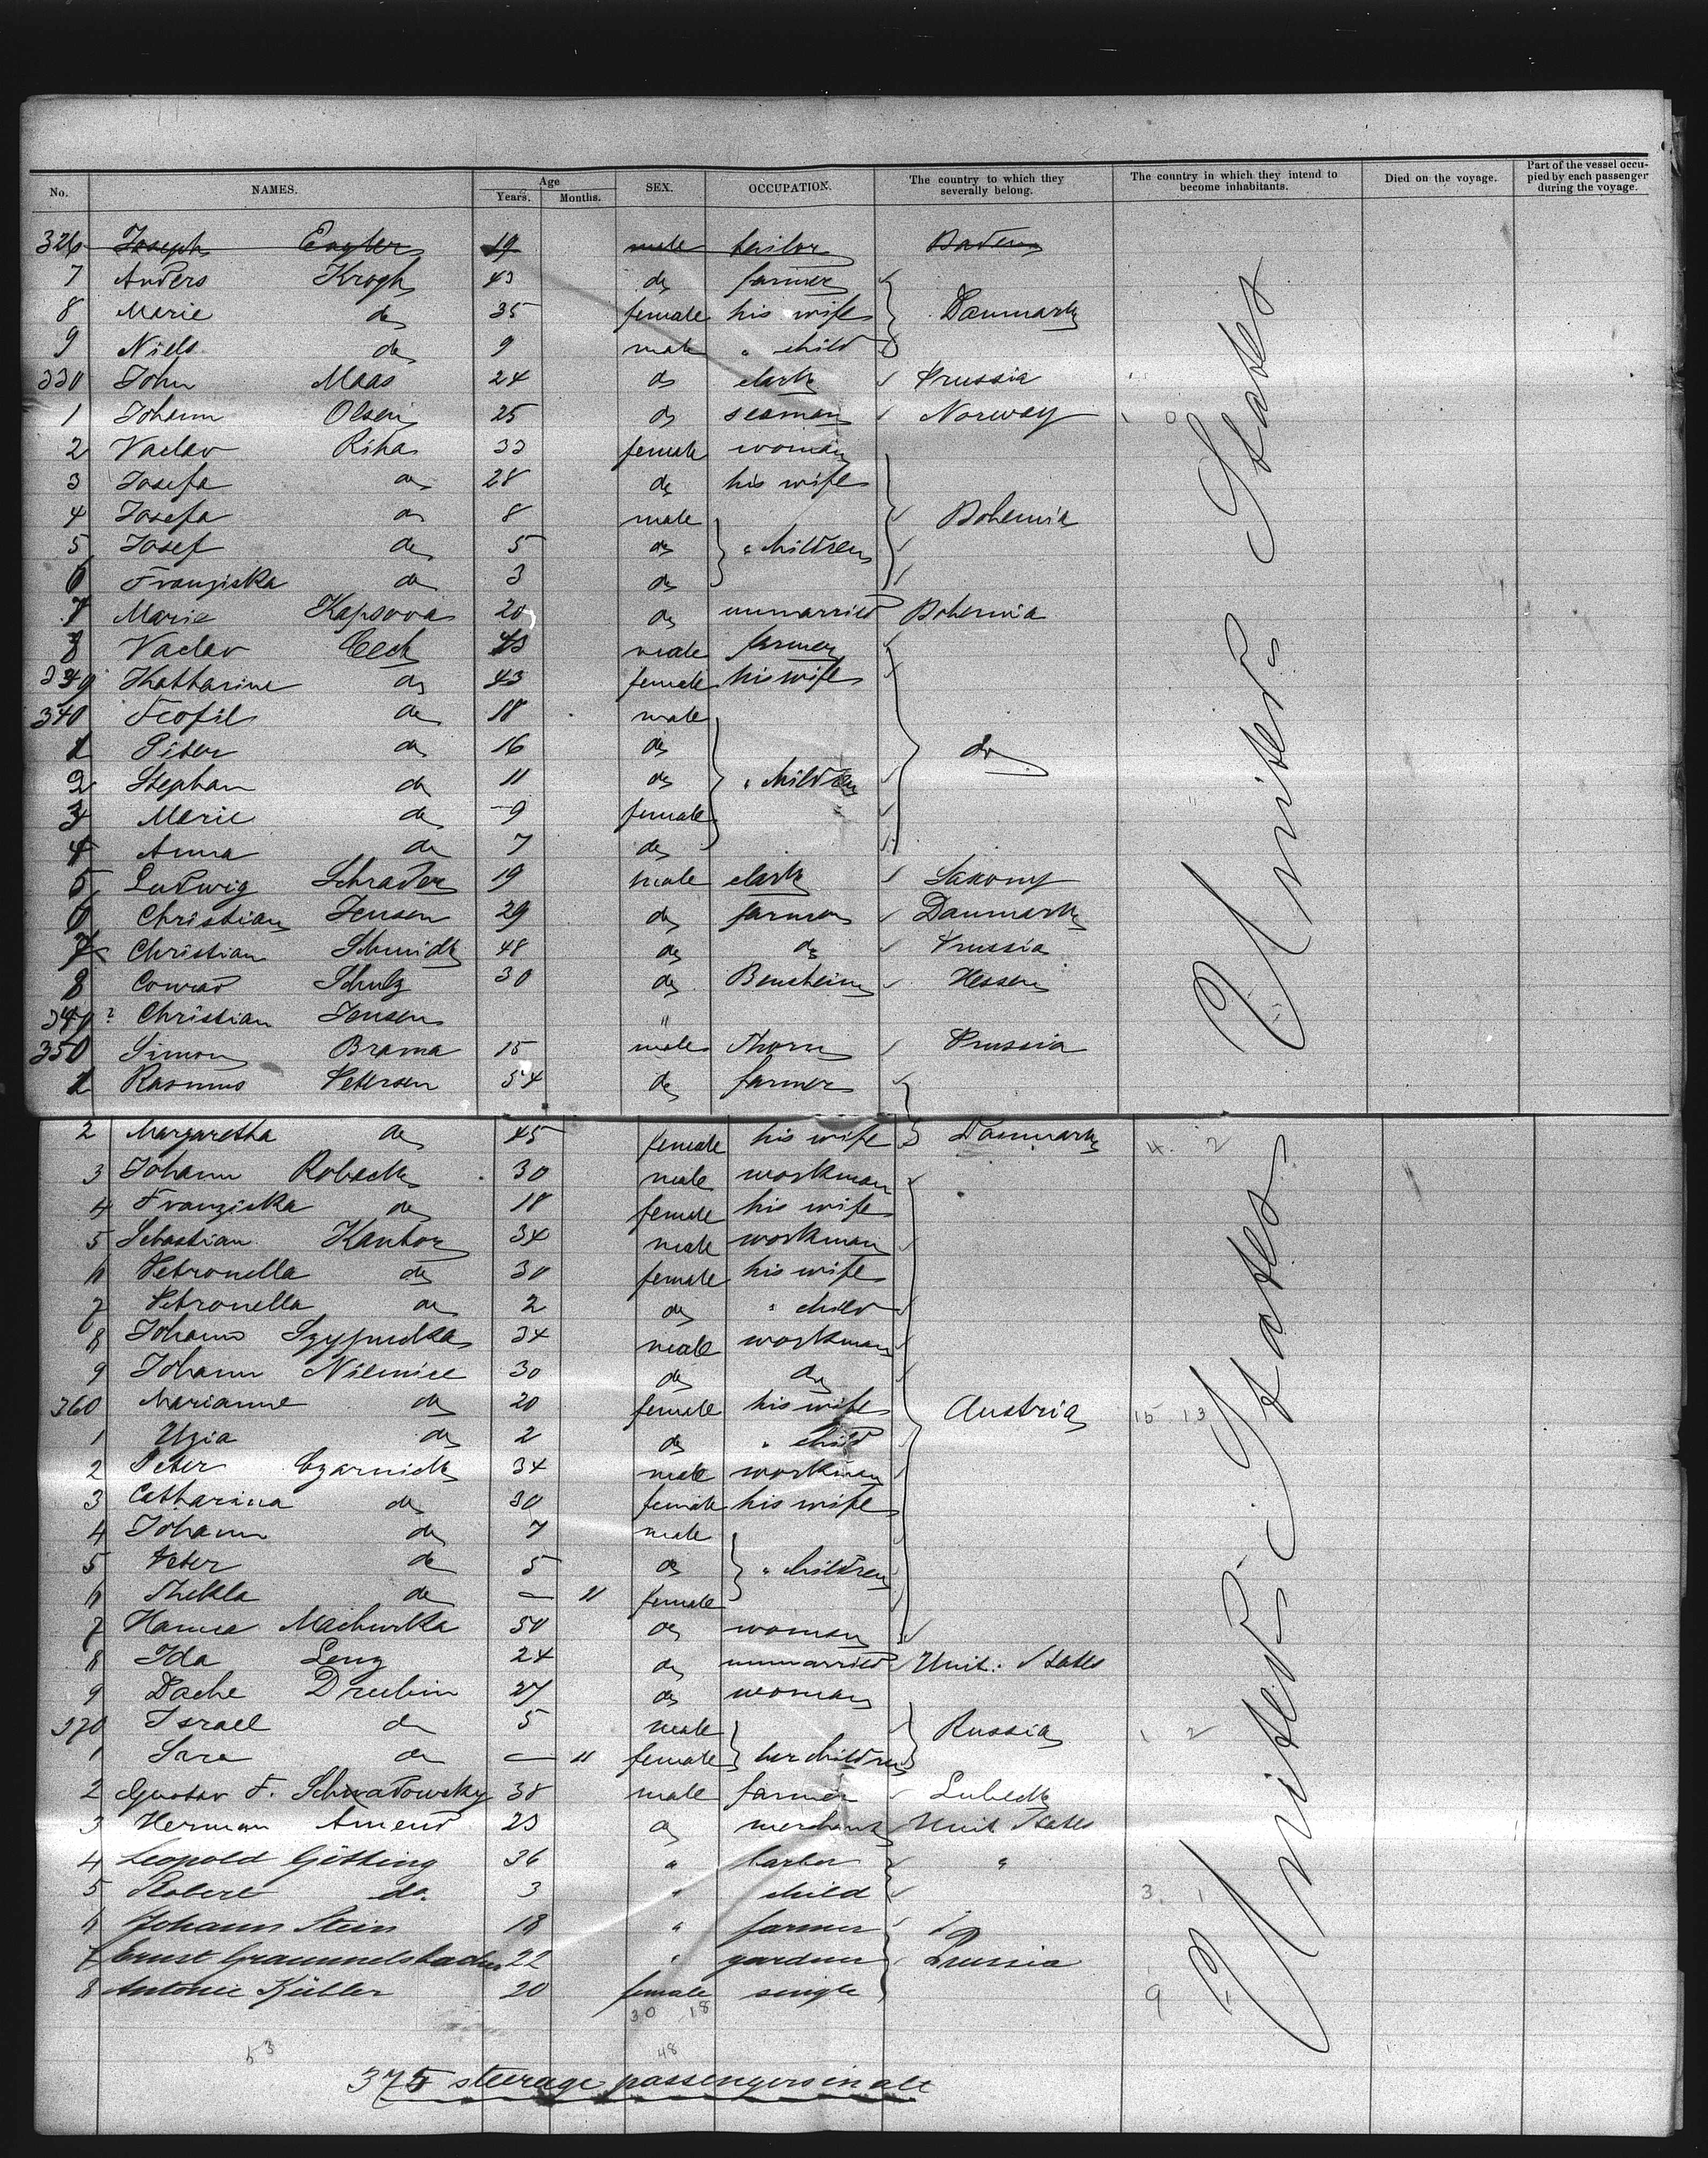 No. NAMES. Age Years. Months. SEX. OCCUPATION. The country to which they severally belong. The country in which they intend to become inhabitants. Died on the voyage. Part of the vessel occupied by each passenger during the voyage.
326 Joseph Engler 19 male tailor Baden
7 Anders Krogh 43 do farmer
8 Marie do 35 female his wife Danmark
9 Niels do 9 male " child
330 John Maas 24 do clerk Prussia
1 Johann Olsen 25 do seaman Norway
2 Vaclav Riha 33 female woman
3 Josefa do 28 do his wife
4 Josefa do 8 male Bohemia
5 Josef do 5 do " children
6 Franziska do 3 do
7 Marie Kapsova 20 do unmarried Bohemia
8 Vaclav Cech 43 male farmer
339 Katharine do 43 female his wife
340 Teofil do 18 male
1 Piter do 16 do do
2 Stephan do 11 do " children
3 Marie do 9 female
4 Anna do 7 do
5 Ludwig Schrader 19 male clerk Saxony
6 Christian Jensen 29 do farmer Danmark
7 Christian Schmidt 48 do do Prussia
8 Conrad Schulz 30 do Bensheim Hessen
349 ? Christian Jensen "
350 Simon Brama 15 male Thorn Prussia
1 Rasmus Petersen 54 do farmer
2 Margaretha do 45 female his wife Danmark 4. 2
3 Johann Roback 30 male workman
4 Franziska do 18 female his wife
5 Sebastian Kantor 34 male workman
6 Petronella do 30 female his wife
7 Petronella do 2 do " child
8 Johann 34 male workman
9 Johann Niemiec 30 do do
360 Marianne do 20 female his wife Austria 15 13
1 Uzia do 2 do " child
2 Peter Czarnick 34 male workman
3 Catharina do 30 female his wife
4 Johann do 7 male
5 Peter do 5 do " children
6 Thekla do — 11 female
7 Hanna Machurka 50 do woman
8 Ida Lenz 24 do unmarried Unit. States
9 Dache Drubin 27 do woman
370 Israel do 5 male Russia 1 2
1 Sara do — 11 female her children
2 Gustav F. Schwadowsky 38 male farmer Lubeck
3 Herman Amend 23 do merchant Unit States
4 Leopold Götting 36 " barber "
5 Robert do. 3 " child 3. 1
6 Johann Stein 18 " farmer
7 Ernst 22 " gardner Prussia
8 Antonie Kübler 20 female single 9
30 18
53 48
375 steerage passengers in all
United States
United States